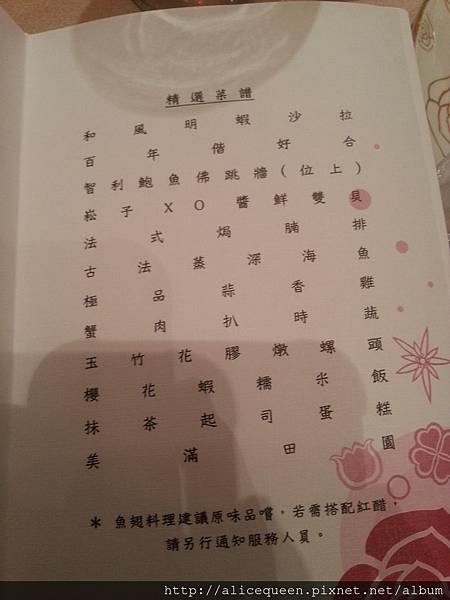 精選菜譜
和風明蝦沙拉
百年偕好合
智利鮑魚佛跳牆(位上)
崧子XO醬鮮雙貝
法式焗腩排
古法蒸深海魚
極品蒜香雞
蟹肉扒時蔬
玉竹花膠燉螺頭
櫻花蝦糯米飯
抹茶起司蛋糕
美滿田園
* 魚翅料理建議原味品嚐，若需搭配紅醋，
請另行通知服務人員。
http://alicequeen.pixnet.net/album